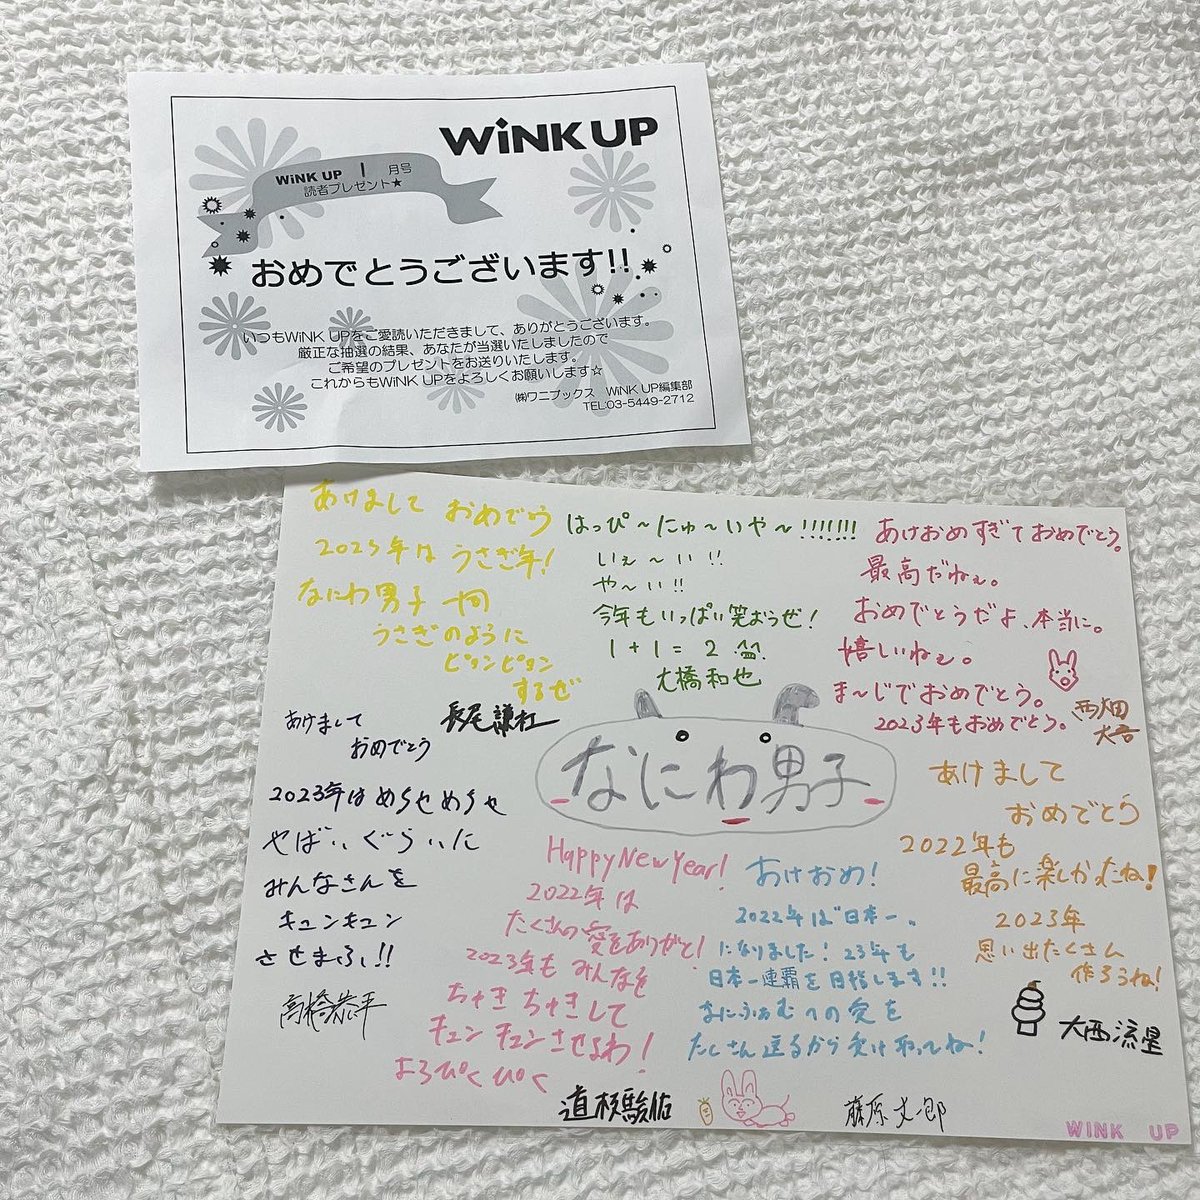 WiNK UP
WiNK UP 1 月号
読者プレゼント★
おめでとうございます!!
いつもWiNK UPをご愛読いただきまして、ありがとうございます。
厳正な抽選の結果、あなたが当選いたしましたので
ご希望のプレゼントをお送りいたします。
これからもWiNK UPをよろしくお願いします☆
㈱ワニブックス WiNK UP編集部
TEL:03-5449-2712
あけまして おめでとう
2023年は うさぎ年!
なにわ男子
うさぎのように
ピョンピョン
するぜ
長尾謙杜
はっぴ〜にゅ〜いや〜!!!!!!!
いぇ〜い!!
や〜い!!
今年もいっぱい笑おうぜ!
1+1=2
大橋和也
あけおめすぎておめでとう。
最高だねぇ。
おめでとうだよ、本当に。
嬉しいねぇ。
ま〜じでおめでとう。
2023年もおめでとう。
西畑
大吾
あけまして
おめでとう
2023年は めちゃめちゃ
やばいぐらいに
みんなさんを
キュンキュン
させまふ!!
高橋恭平
なにわ男子
Happy New Year!
2022年は
たくさんの愛をありがと!
2023年も みんなを
ちゃき ちゃきして
キュン キュンさせるわ!
よろぴくぴく
道枝駿佑
あけおめ!
2022年は"日本一"
になりました! 23年も
日本一連覇を目指します!!
なにふぁむへの愛を
たくさん送るから受け取ってね!
藤原丈一郎
あけまして
おめでとう
2022年も
最高に楽しかったね!
2023年
思い出たくさん
作ろうね!
大西流星
WINK UP